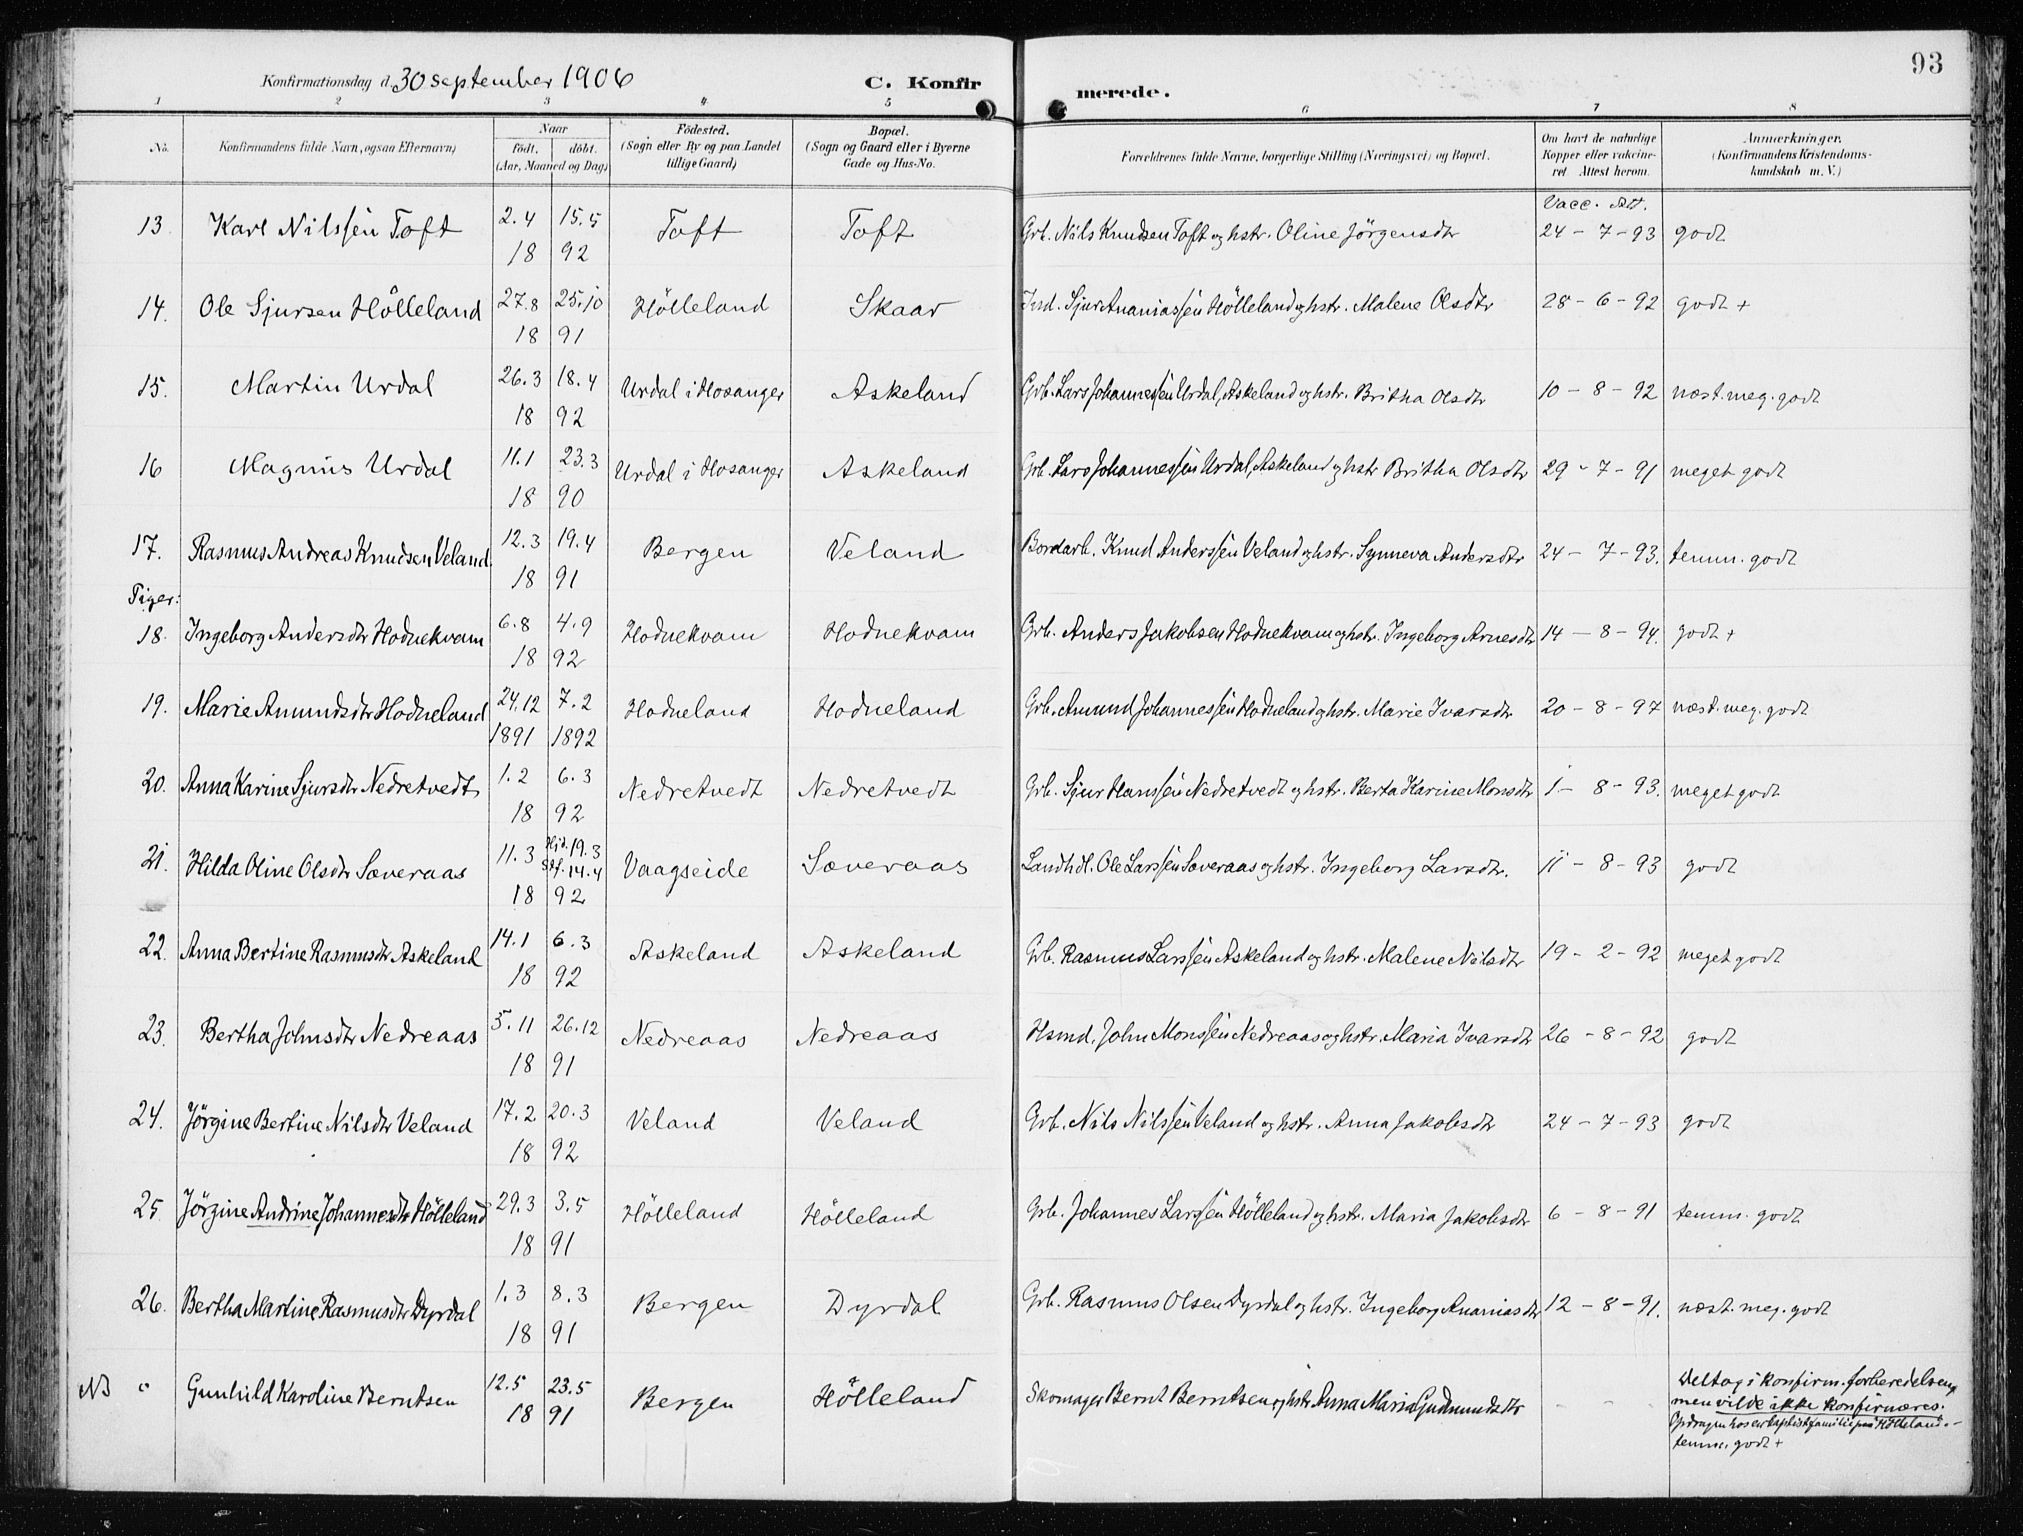 93
Konfirmationsdag d. 30 september 1906 C. Konfirmerede.
1 2 3 4 5 6 7 8
No. Konfirmandens fulde Navn, ogsaa Efternavn) Naar födt. döbt. (Aar, Maaned og Dag) Födested. (Sogn eller By og paa Landet tillige Gaard) Bopæl. (Sogn og Gaard eller i Byerne Gade og Hus-No. Forældrenes fulde Navne, borgerlige Stilling (Næringsvei) og Bopæl. Om havt de naturlige Kopper eller vakcineret. Attest herom. Anmærkninger. (Konfirmandens Kristendomskundskab m. V.)
Vacc. Att.
13. Karl Nilssen Toft 2.4 15.5 Toft Toft Grb. Nils Knudsen Toft og hstr. Oline Jörgensdtr 24 - 7 - 93 godt
18 92
14. Ole Sjursen Hölleland 27.8 25.10 Hölleland Skaar Ind. Sjur Ananiassen Hölleland og hstr. Malene Olsdtr 28 - 6 - 92 godt +
18 91
15. Martin Urdal 26.3 18.4 Urdal i Hosanger Askeland Grb. Lars Johannessen Urdal, Askeland og hstr. Britha Olsdtr 10 - 8 - 92 næst. meg. godt
18 92
16 Magnus Urdal 11.1 23.3 Urdal i Hosanger Askeland Grb. Lars Johannessen Urdal, Askeland og hstr Britha Olsdtr 29 - 7 - 91 meget godt
18 90
17. Rasmus Andreas Knudsen Veland 12.3 19.4 Bergen Veland Bordarb. Knud Anderssen Veland og hstr. Synneva Andersdtr 24 - 7 - 93. temm. godt
18 91
Piger:
18. Ingeborg Andersdtr Hodnekvam 6.8 4.9 Hodnekvam Hodnekvam Grb. Anders Jakobsen Hodnekvam og hstr. Ingeborg Arnesdtr 14 - 8 - 94. godt +
18 92
19. Marie Amundsdtr Hodneland 24.12 7.2 Hodneland Hodneland Grb. Amund Johannessen Hodneland og hstr. Marie Ivarsdtr 20 - 8 - 97 næst. meg. godt
1891 1892
20. Anna Karine Sjursdtr Nedretvedt 1.2 6.3 Nedretvedt Nedretvedt Grb. Sjur Hanssen Nedretvedt og hstr. Berta Karine Monsdtr 1 - 8 - 93. meget godt
18 92
21. Hilda Oline Olsdtr Sæveraas 11.3 Hjd. 19.3 Stf. 14.4 Vaagseide Sæveraas Landhdl. Ole Larssen Sæveraas og hstr. Ingeborg Larsdtr. 11 - 8 - 93 godt
18 92
22. Anna Bertine Rasmusdtr Askeland 14.1 6.3 Askeland Askeland Grb. Rasmus Larssen Askeland og hstr. Malene Nilsdtr 19 - 2 - 92 meget godt
18 92
23. Bertha Johnsdtr Nedreaas 5.11 26.12 Nedreaas Nedreaas Hsmd. John Monssen Nedreaas og hstr. Maria Ivarsdtr 26 - 8 - 92 godt
18 91
24. Jörgine Bertine Nilsdtr Veland 17.2 20.3 Veland Veland Grb. Nils Nilssen Veland og hstr. Anna Jakobsdtr 24 - 7 - 93 godt
18 92
25. Jörgine Andrine Johannesdtr Hölleland 29.3 3.5 Hölleland Hölleland Grb. Johannes Larssen Hölleland og hstr. Maria Jakobsdtr 6 - 8 - 91 temm. godt
18 91
26. Bertha Martine Rasmusdtr Dyrdal 1.3 8.3 Bergen Dyrdal Grb. Rasmus Olsen Dyrdal og hstr. Ingeborg Ananiasdtr 12 - 8 - 91. næst. meg. godt
18 91
NB " Gunhild Karoline Berntsen 12.5 23.5 Bergen Hölleland Skomager Bernt Berntsen og hstr Anna Maria Gudmundsdtr - - - Deltog i konfirm. forberedelsen,
18 91 men vilde ikke konfirmeres.
Opdragen hos en baptistfamilie paa Hölleland. -
temm. godt +